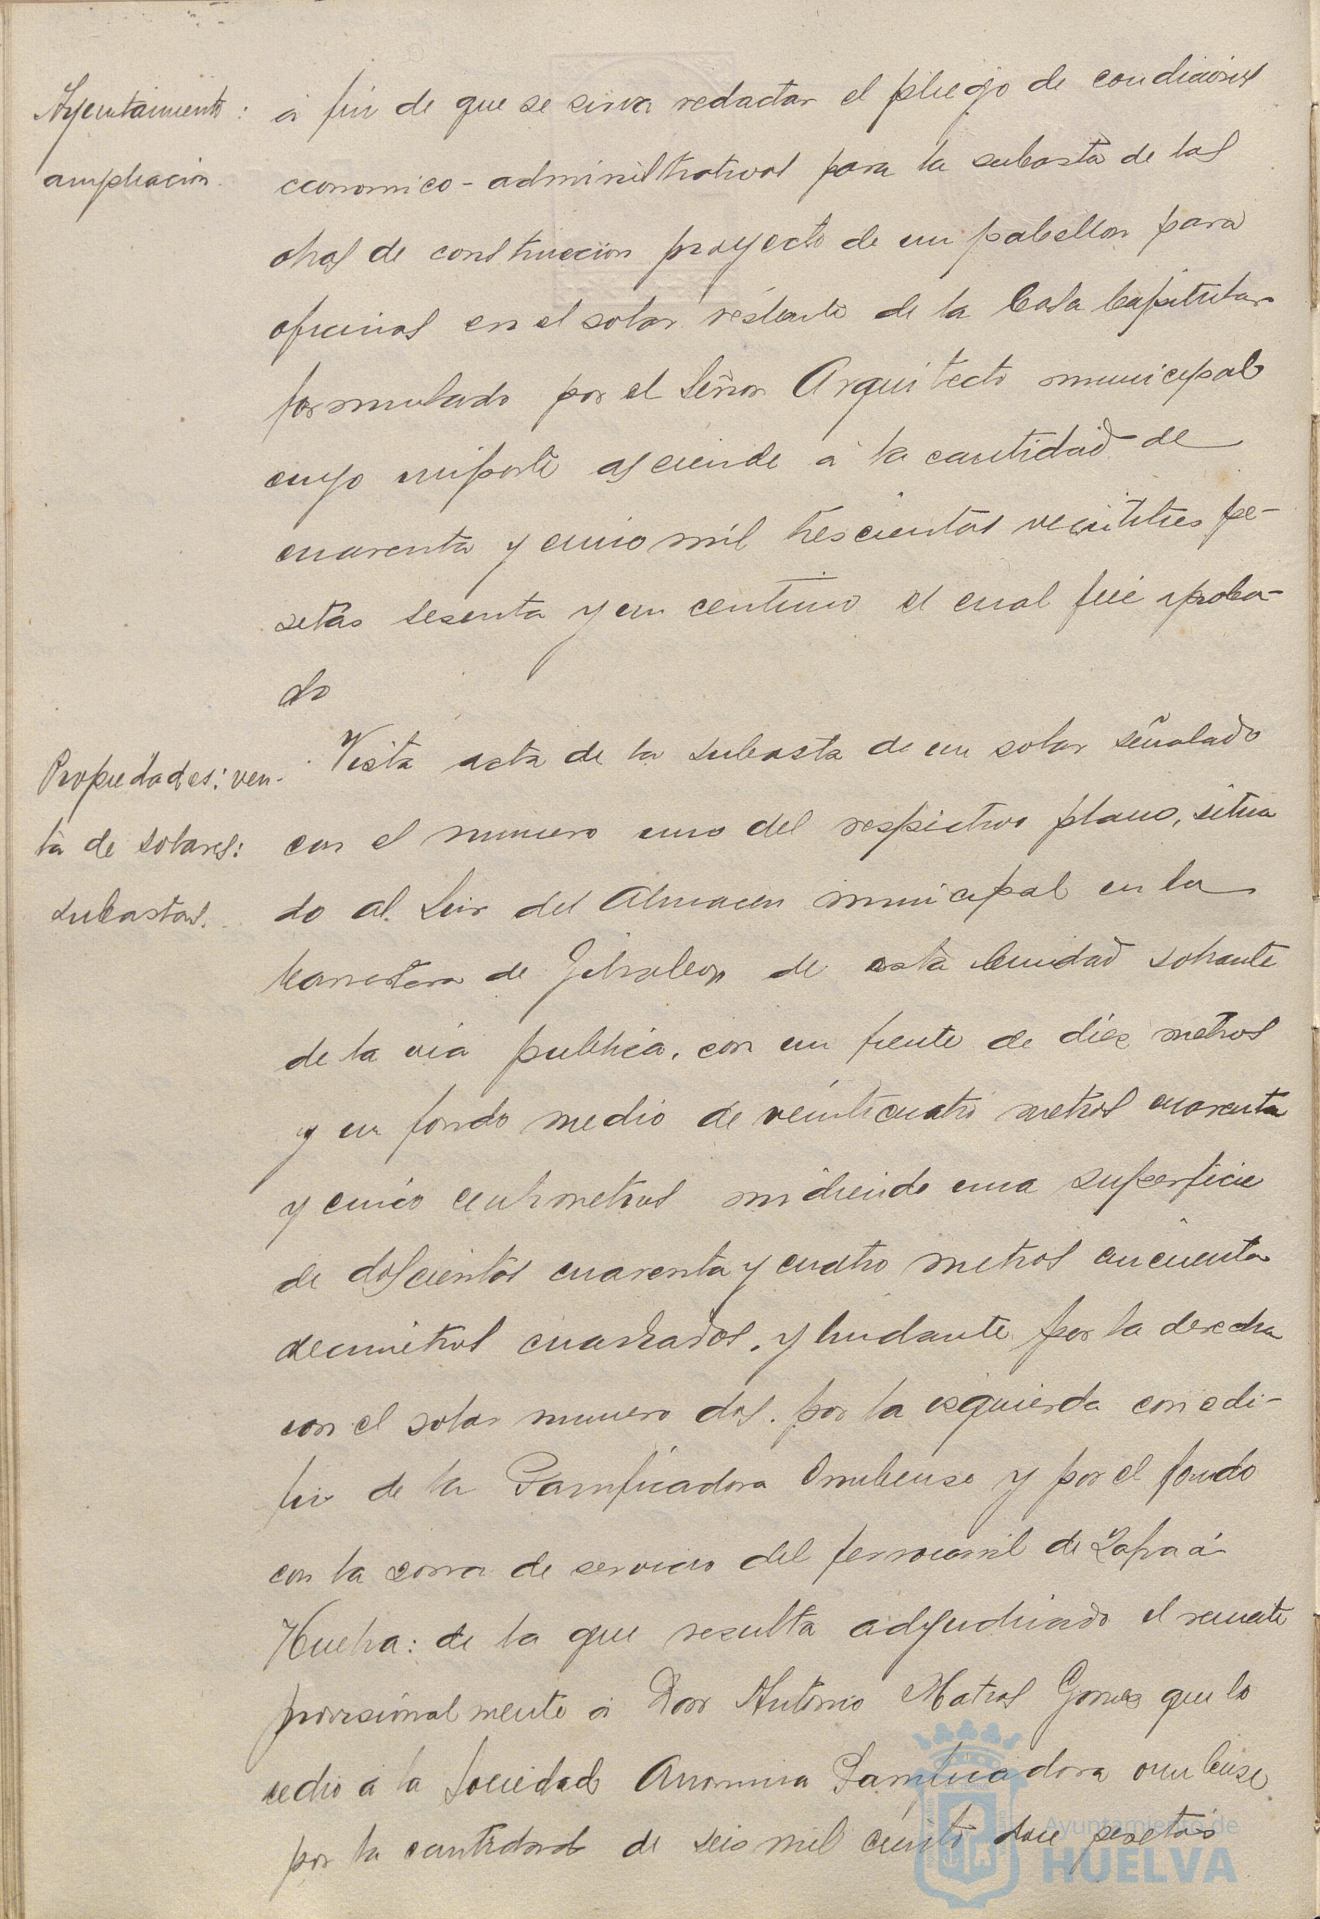 Ayuntamiento:
ampliacion.
á fin de que se sirva redactar el pliego de condiciones
economico-administrativas para la subasta de las
obras de construccion proyecto de un pabellon para
oficinas en el solar restante de la Casa Capitular
formulado por el Señor Arquitecto municipal
cuyo importe asciende á la cantidad de
cuarenta y cinco mil trescientas veintitres pe-
setas sesenta y un centimo el cual fué aproba-
do
Propiedades: ven-
ta de solares:
subastas.
Vista acta de la subasta de un solar señalado
con el numero uno del respectivo plano, situa
do al Sur del Almacen municipal en la
Carretera de Gibraleon de esta Ciudad sobrante
de la via publica, con un frente de diez metros
y un fondo medio de veinticuatro metros cuarenta
y cinco centimetros midiendo una superficie
de doscientos cuarenta y cuatro metros cincuenta
decimetros cuadrados, y lindante por la derecha
con el solar numero dos, por la izquierda con edi-
fi de la Panificadora Onubense y por el fondo
con la zona de servicio del ferrocarril de Zafra á
Huelva: de la que resulta adjudicado el remate
provisionalmente á Don Antonio Matos Gomez que lo
cedio á la Sociedad Anonima Panificadora onubense
por la cantidad de seis mil ciento doce pesetas
Ayuntamiento de
HUELVA